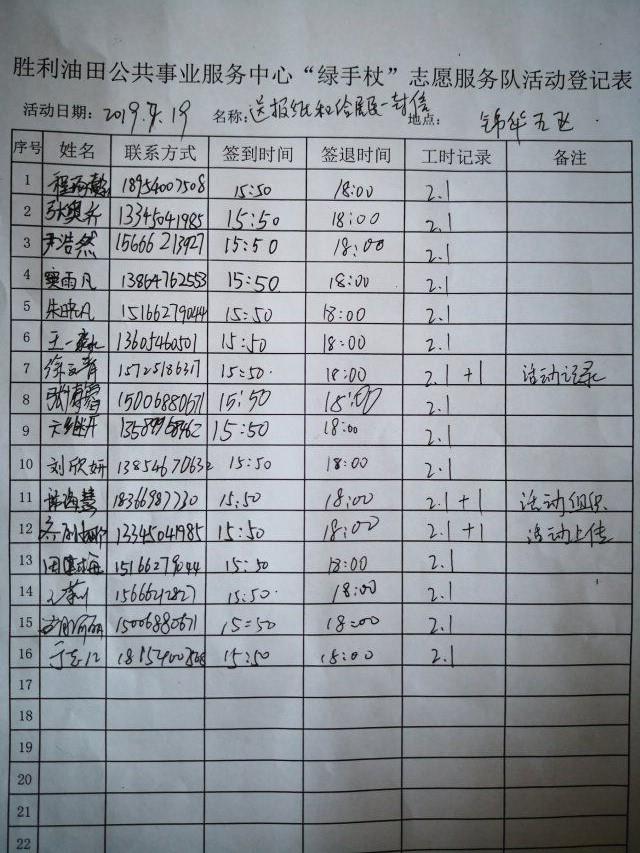 胜利油田公共事业服务中心“绿手杖”志愿服务队活动登记表
活动日期: 2019.4.19 名称: 送报纸和给居民一封信 地点: 锦华五区
序号 姓名 联系方式 签到时间 签退时间 工时记录 备注
1 18954007508 15:50 18:00 2.1
2 13345041985 15:50 18:00 2.1
3 尹浩然 15666213927 15:50 18:00 2.1
4 窦雨凡 13864762553 15:50 18:00 2.1
5 朱晓凡 15166279044 15:50 18:00 2.1
6 王一 13605460501 15:50 18:00 2.1
7 徐文青 15725186317 15:50 18:00 2.1 +1 活动记录
8 15006880671 15:50 18:00 2.1
9 15:50 18:00 2.1
10 刘欣妍 13854670632 15:50 18:00 2.1
11 18366987730 15:50 18:00 2.1 +1 活动组织
12 13345041985 15:50 18:00 2.1 +1 活动上传
13 15166279044 15:50 18:00 2.1
14 15:50 18:00 2.1
15 15006880671 15:50 18:00 2.1
16 15:50 18:00 2.1
17
18
19
20
21
22